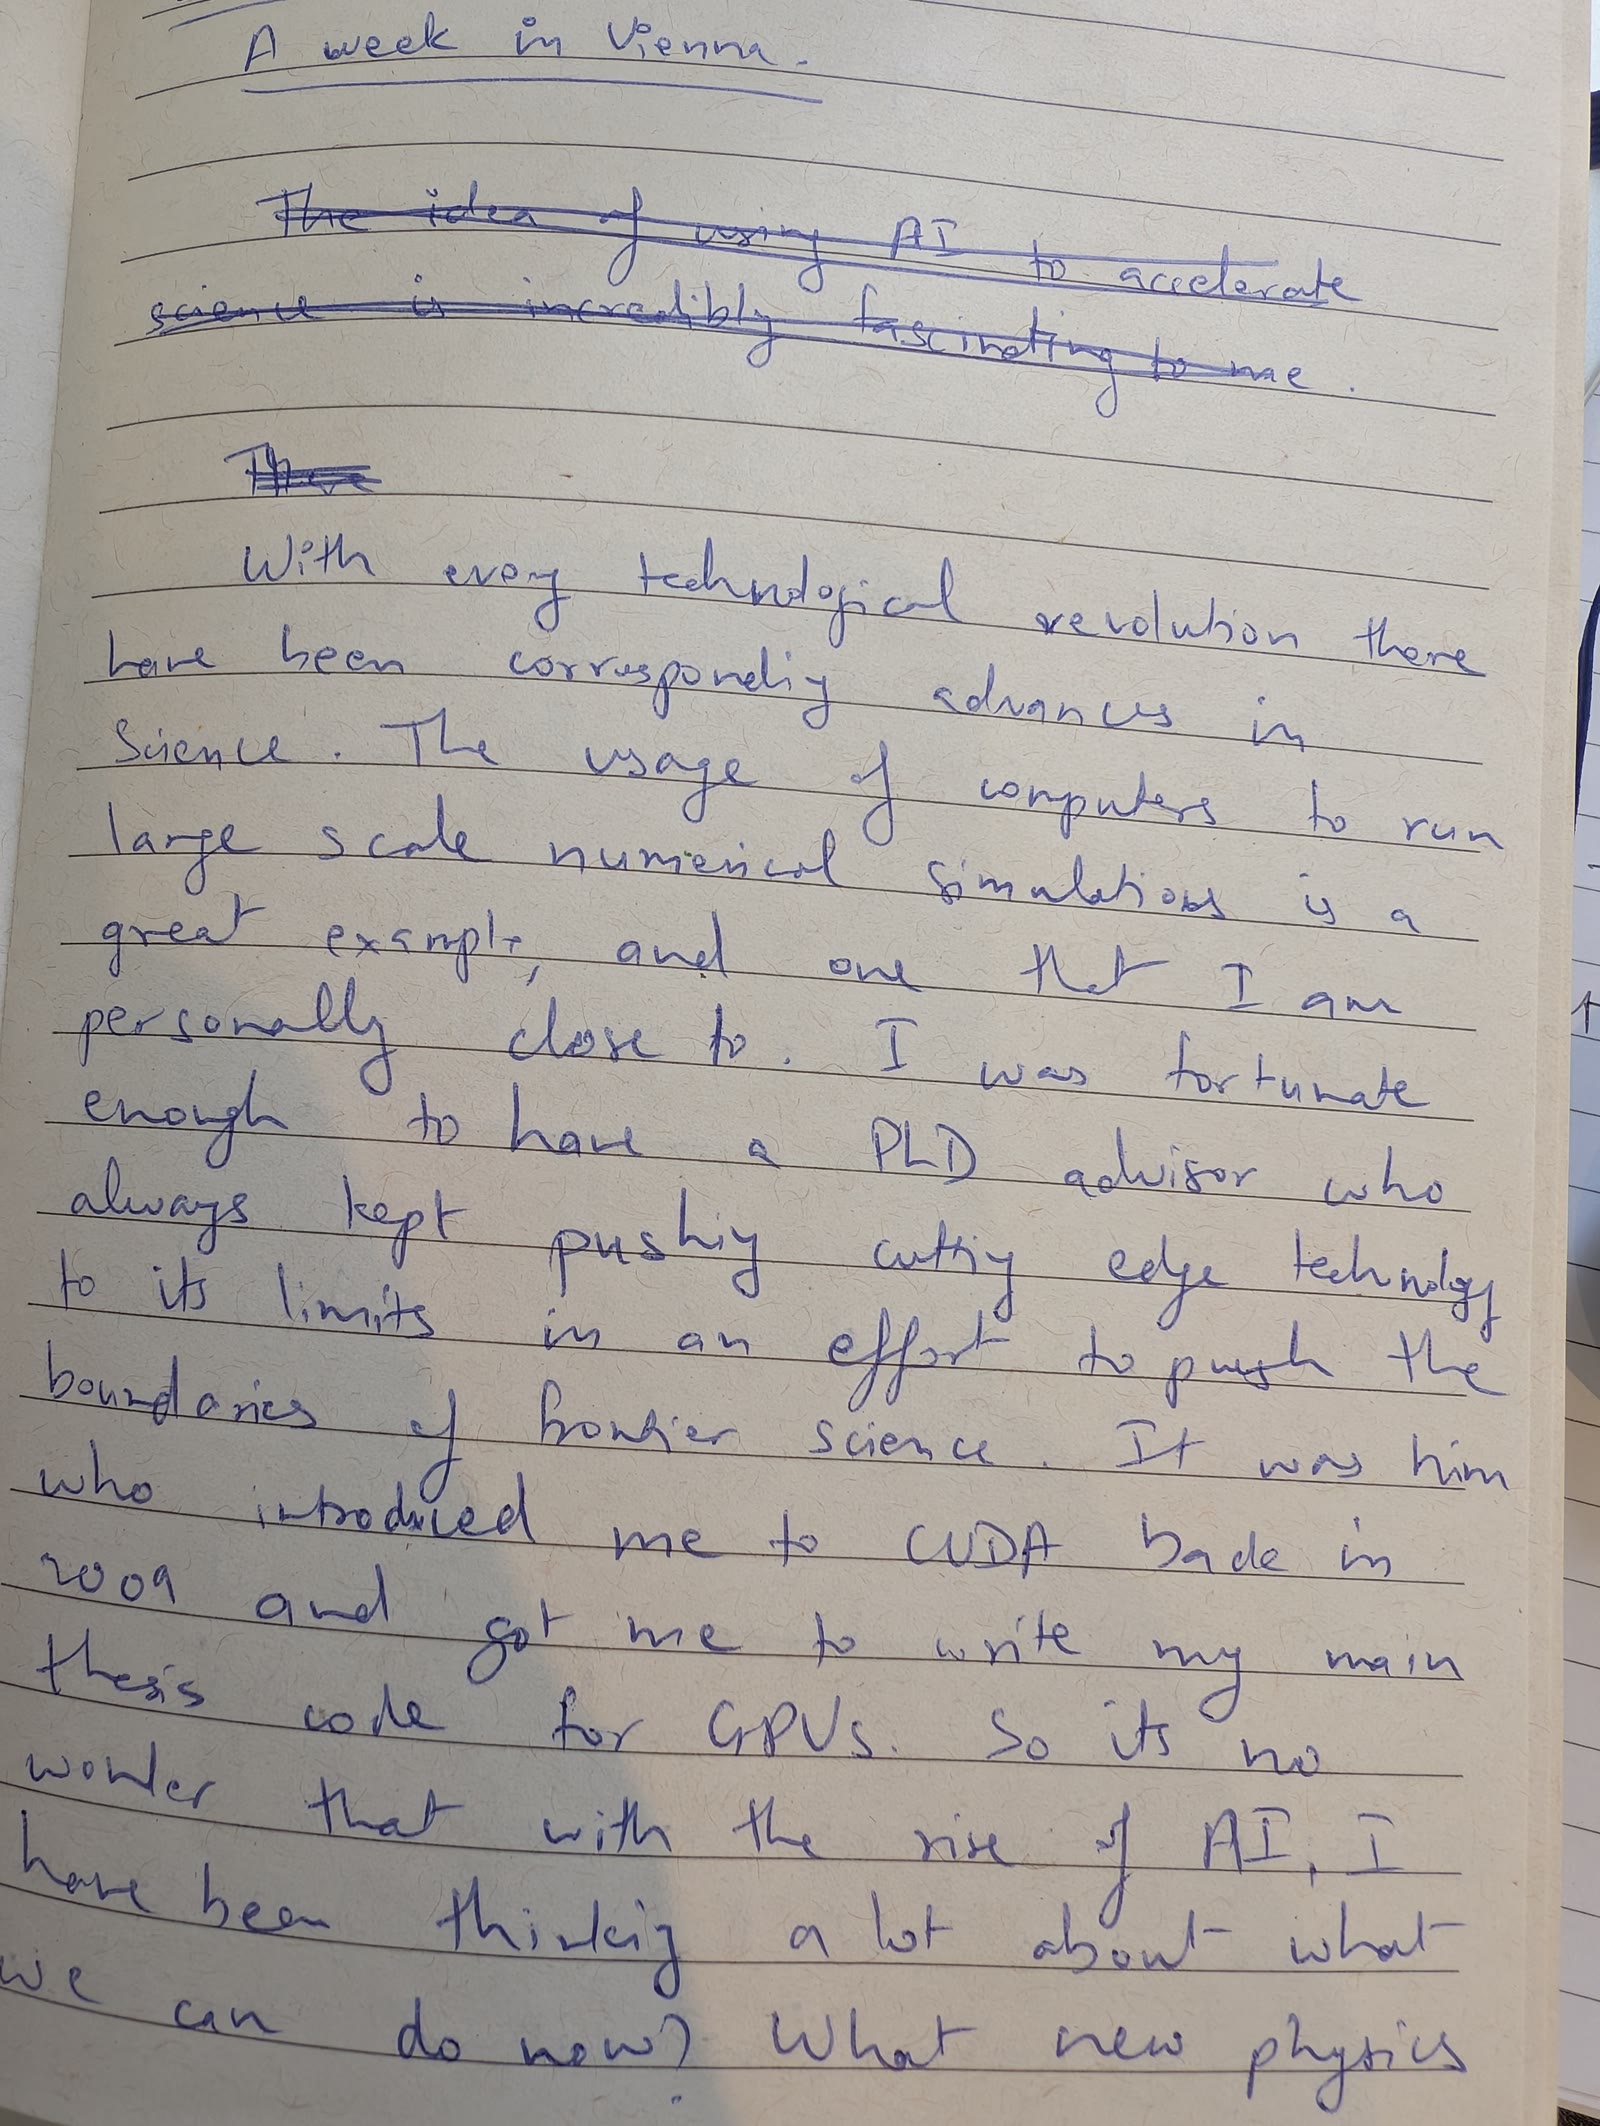 A week in Vienna.
The idea of using AI to accelerate
science is incredibly fascinating to me.
With every technological revolution there
have been corresponding advances in
Science. The usage of computers to run
large scale numerical simulations is a
great example, and one that I am
personally close to. I was fortunate
enough to have a PhD advisor who
always kept pushing cutting edge technology
to its limits in an effort to push the
boundaries of frontier science. It was him
who introduced me to CUDA back in
2009 and got me to write my main
thesis code for GPUs. So its no
wonder that with the rise of AI, I
have been thinking a lot about what
we can do now? What new physics